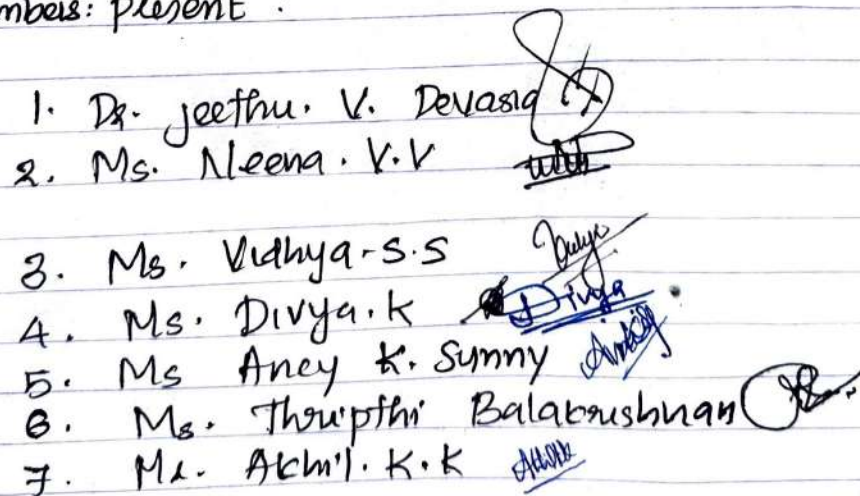 mbers: present.
1. Dr. Jeethu. V. Devasia
2. Ms. Neena. V.V
3. Ms. Vidhya. S.S
4. Ms. Divya. K Divya
5. Ms Aney K. Sunny
6. Ms. Thripthi Balakrishnan
7. Mr. Akhil. K.K